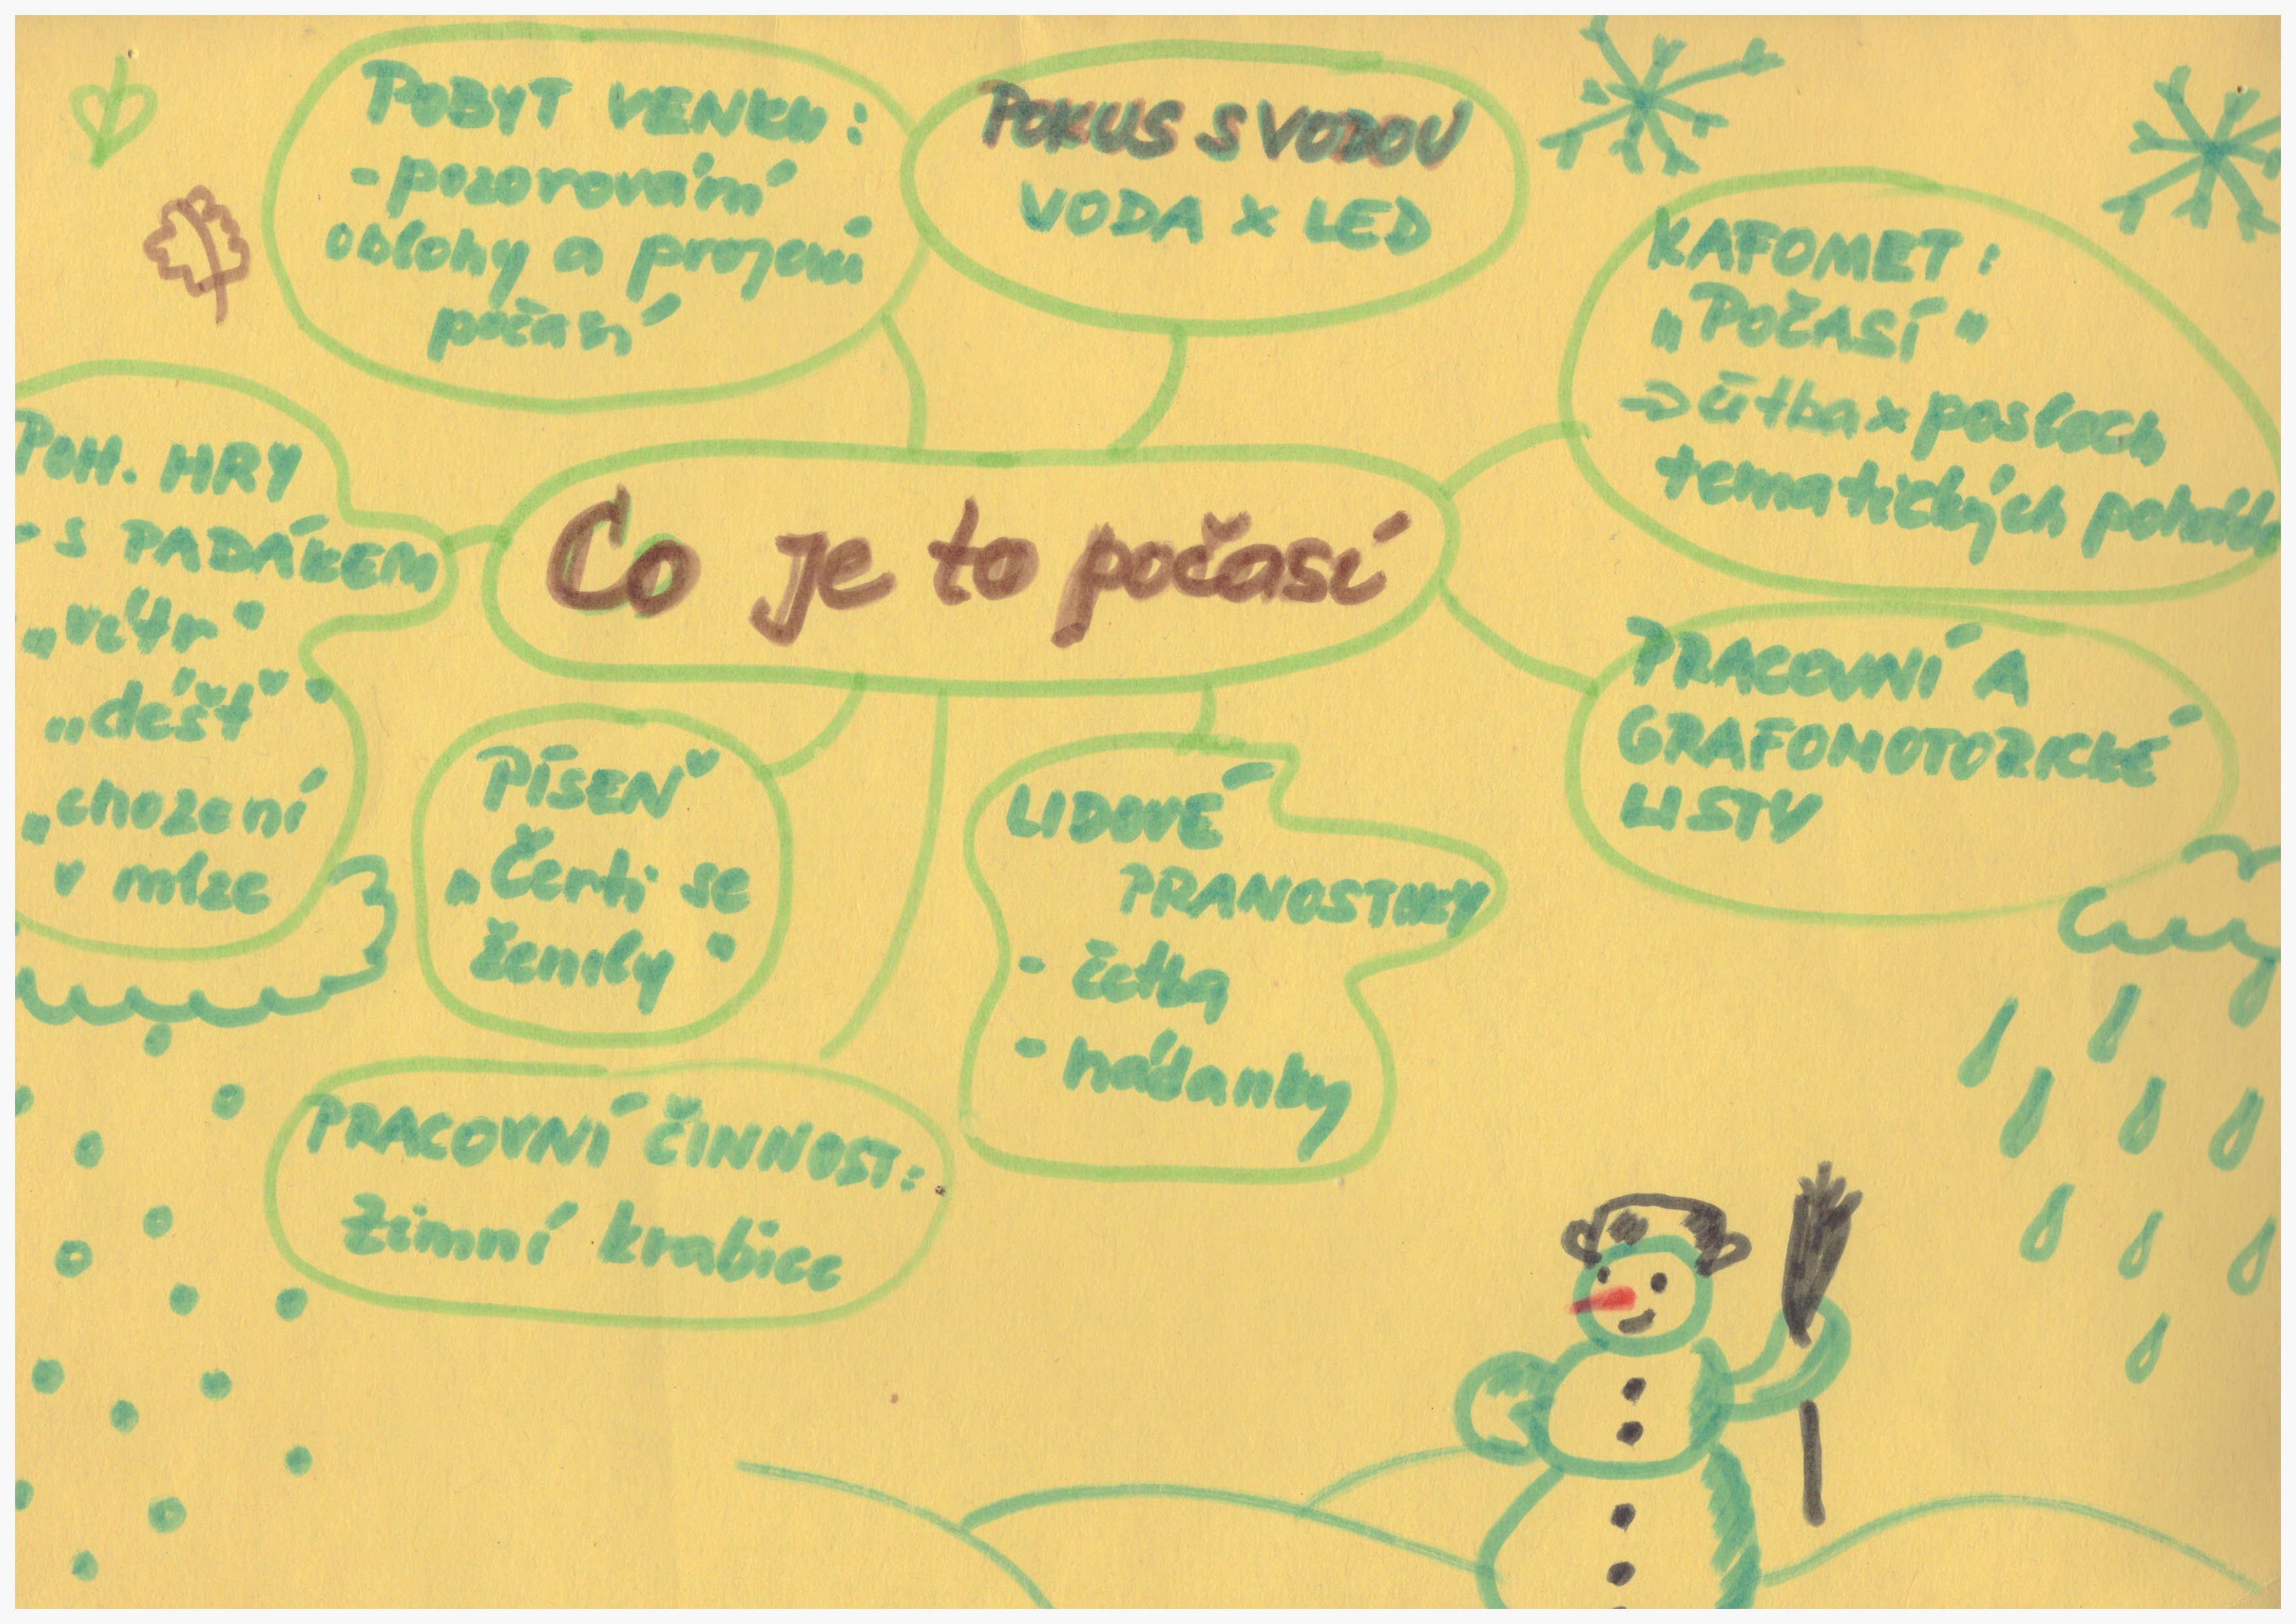 POBYT VENKU:
- pozorování
oblohy a projevů
počasí
POKUS S VODOU
VODA x LED
KAFOMET:
„POČASÍ"
→ četba x poslech
tematických pohádek
POH. HRY
- S PADÁKEM
„vítr"
„déšť"
„chození
v mlze
Co je to počasí
PRACOVNÍ A
GRAFOMOTORICKÉ
LISTY
PÍSEŇ
„Čerti se
ženily"
LIDOVÉ
PRANOSTIKY
- četba
- hádanky
PRACOVNÍ ČINNOST:
zimní krabice